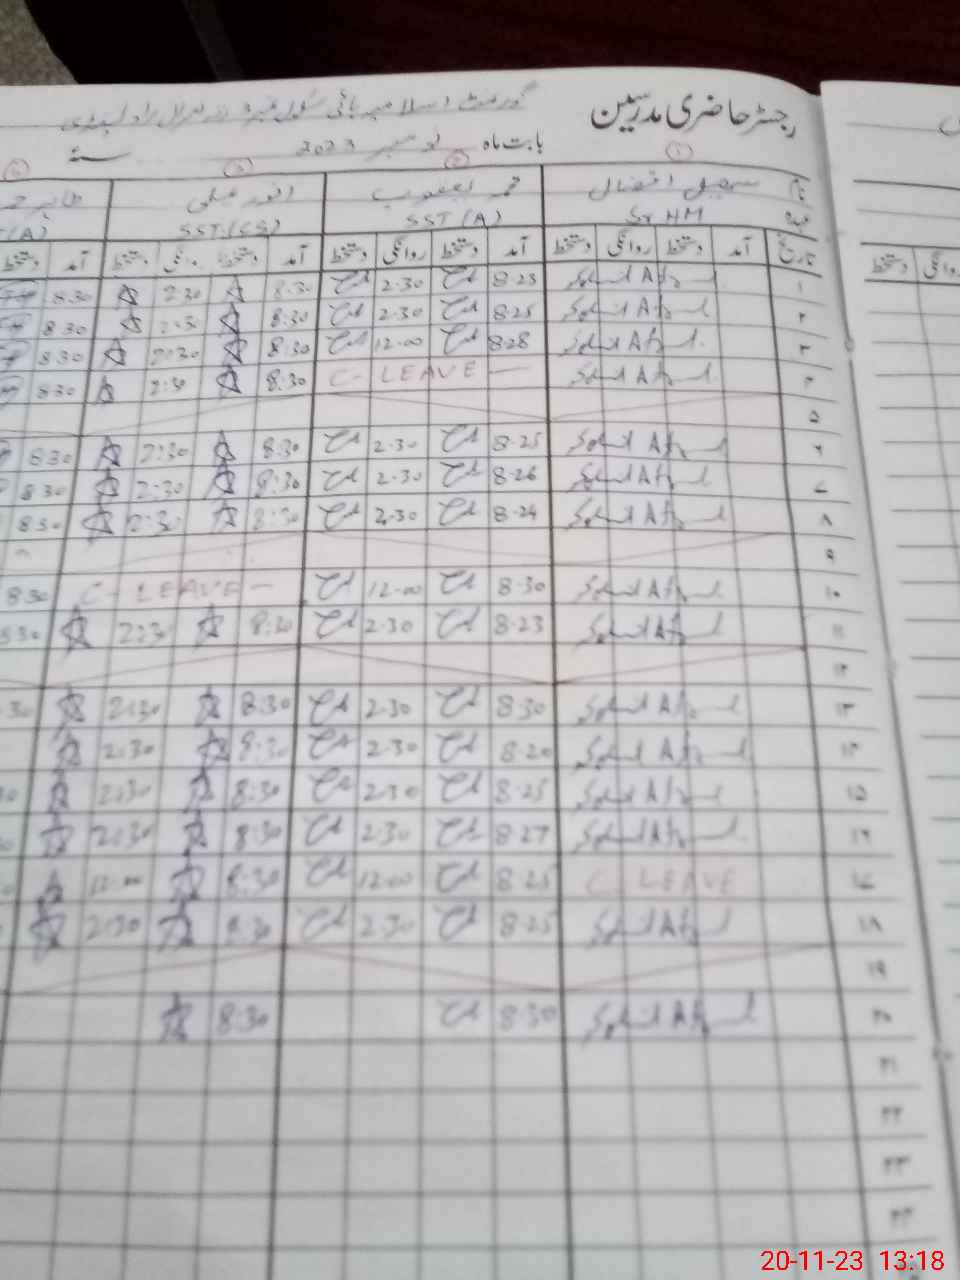 رجسٹر حاضری مدرسین
گورنمنٹ اسلامیہ ہائی سکول نمبر
بابت ماہ نومبر 2023 سنہ
1 2 3
نام سہیل افضال محمد یعقوب انور علی طاہر
عہدہ Sr HM SST (A) SST (CS) (A)
تاریخ آمد دستخط روانگی دستخط آمد دستخط روانگی دستخط آمد دستخط روانگی دستخط آمد دستخط
۱ Sohail Afzal 8.23 2.30 8:30 2:30 8.30
۲ Sohail Afzal 8.25 2.30 8:30 2:30 8.30
۳ Sohail Afzal 8.28 12.00 8:30 2:30 8.30
۴ Sohail Afzal C- LEAVE — 8:30 2:30 8.30
۵
۶ Sohail Afzal 8.25 2.30 8:30 2:30 8.30
۷ Sohail Afzal 8.26 2.30 8:30 2:30 8.30
۸ Sohail Afzal 8.24 2.30 8:30 2:30 8.30
۹
۱۰ Sohail Afzal 8.30 12.00 C- LEAVE — 8.30
۱۱ Sohail Afzal 8.23 2.30 8:30 2:30 8.30
۱۲
۱۳ Sohail Afzal 8.30 2.30 8:30 2:30
۱۴ Sohail Afzal 8.20 2.30 8:30 2:30
۱۵ Sohail Afzal 8.25 2.30 8:30 2:30
۱۶ Sohail Afzal 8.27 2.30 8:30 2:30
۱۷ C- LEAVE 8.25 12.00 8:30 12:00
۱۸ Sohail Afzal 8.25 2.30 8:30 2:30
۱۹
۲۰ Sohail Afzal 8.30 8:30
۲۱
۲۲
۲۳
۲۴
دستخط روانگی
20-11-23 13:18